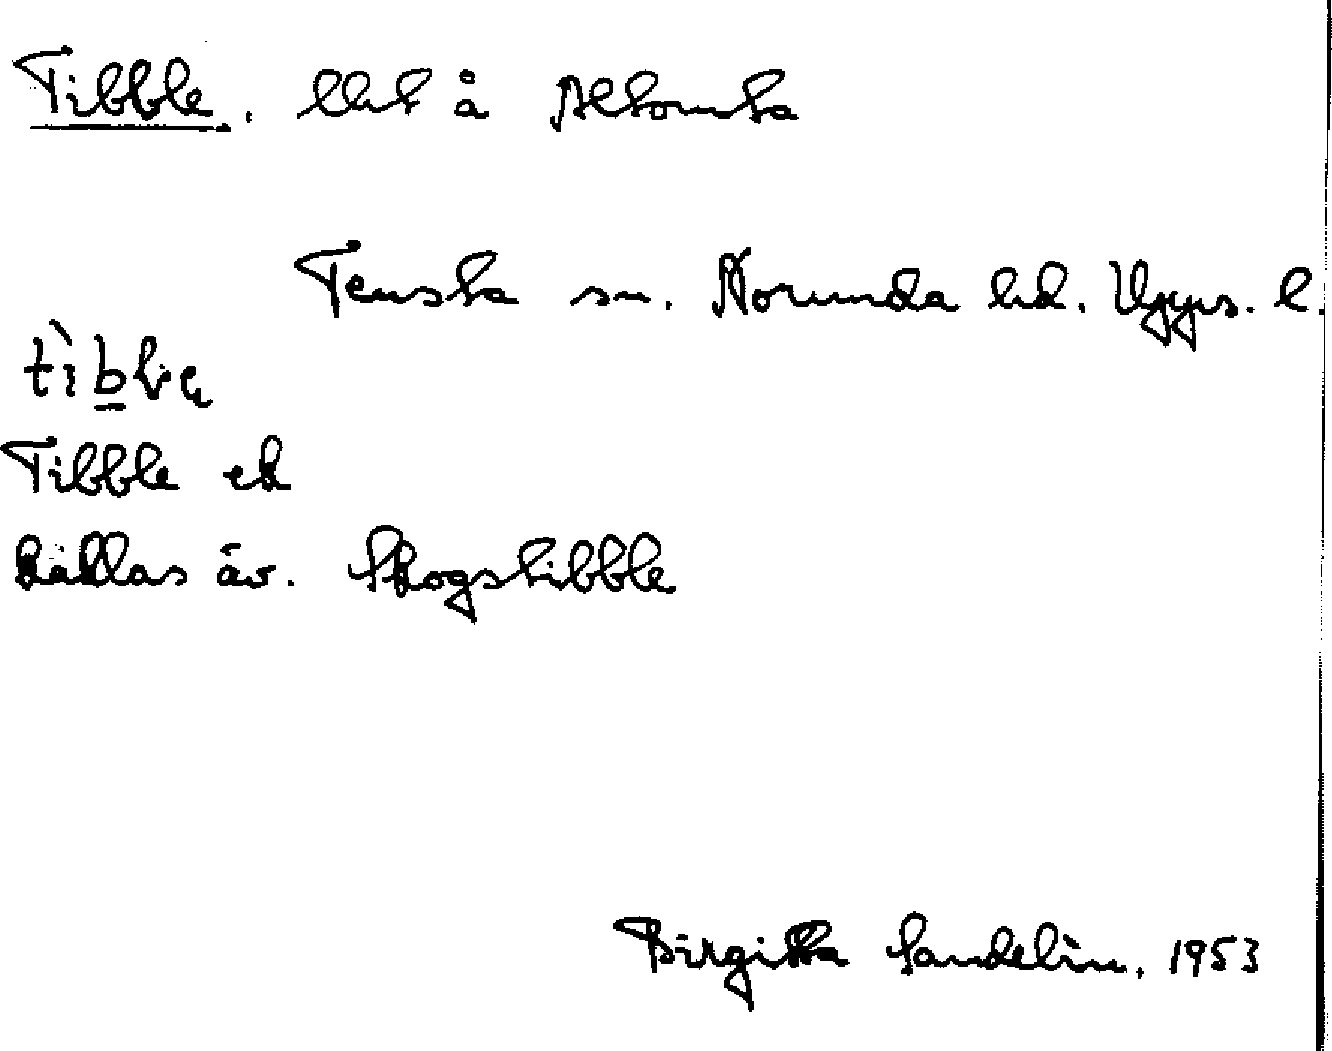 Tibble. Utt å Altomta
Tensta sn. Norunda hd. Upps. l.
tìbble
Tibble ek
kallas äv. Skogstibble
Birgitta Sandelin, 1953